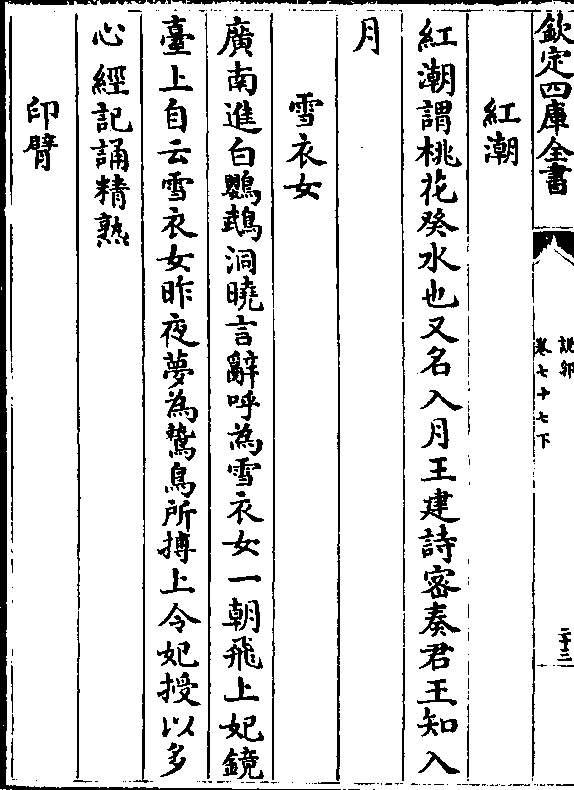 欽定四庫全書
說郛
卷七十七下
二十三
紅潮
紅潮謂桃花癸水也又名入月王建詩密奏君王知入
月
雪衣女
廣南進白鸚鵡洞曉言辭呼為雪衣女一朝飛上妃鏡
臺上自云雪衣女昨夜夢為鷙鳥所搏上令妃授以多
心經記誦精熟
印臂